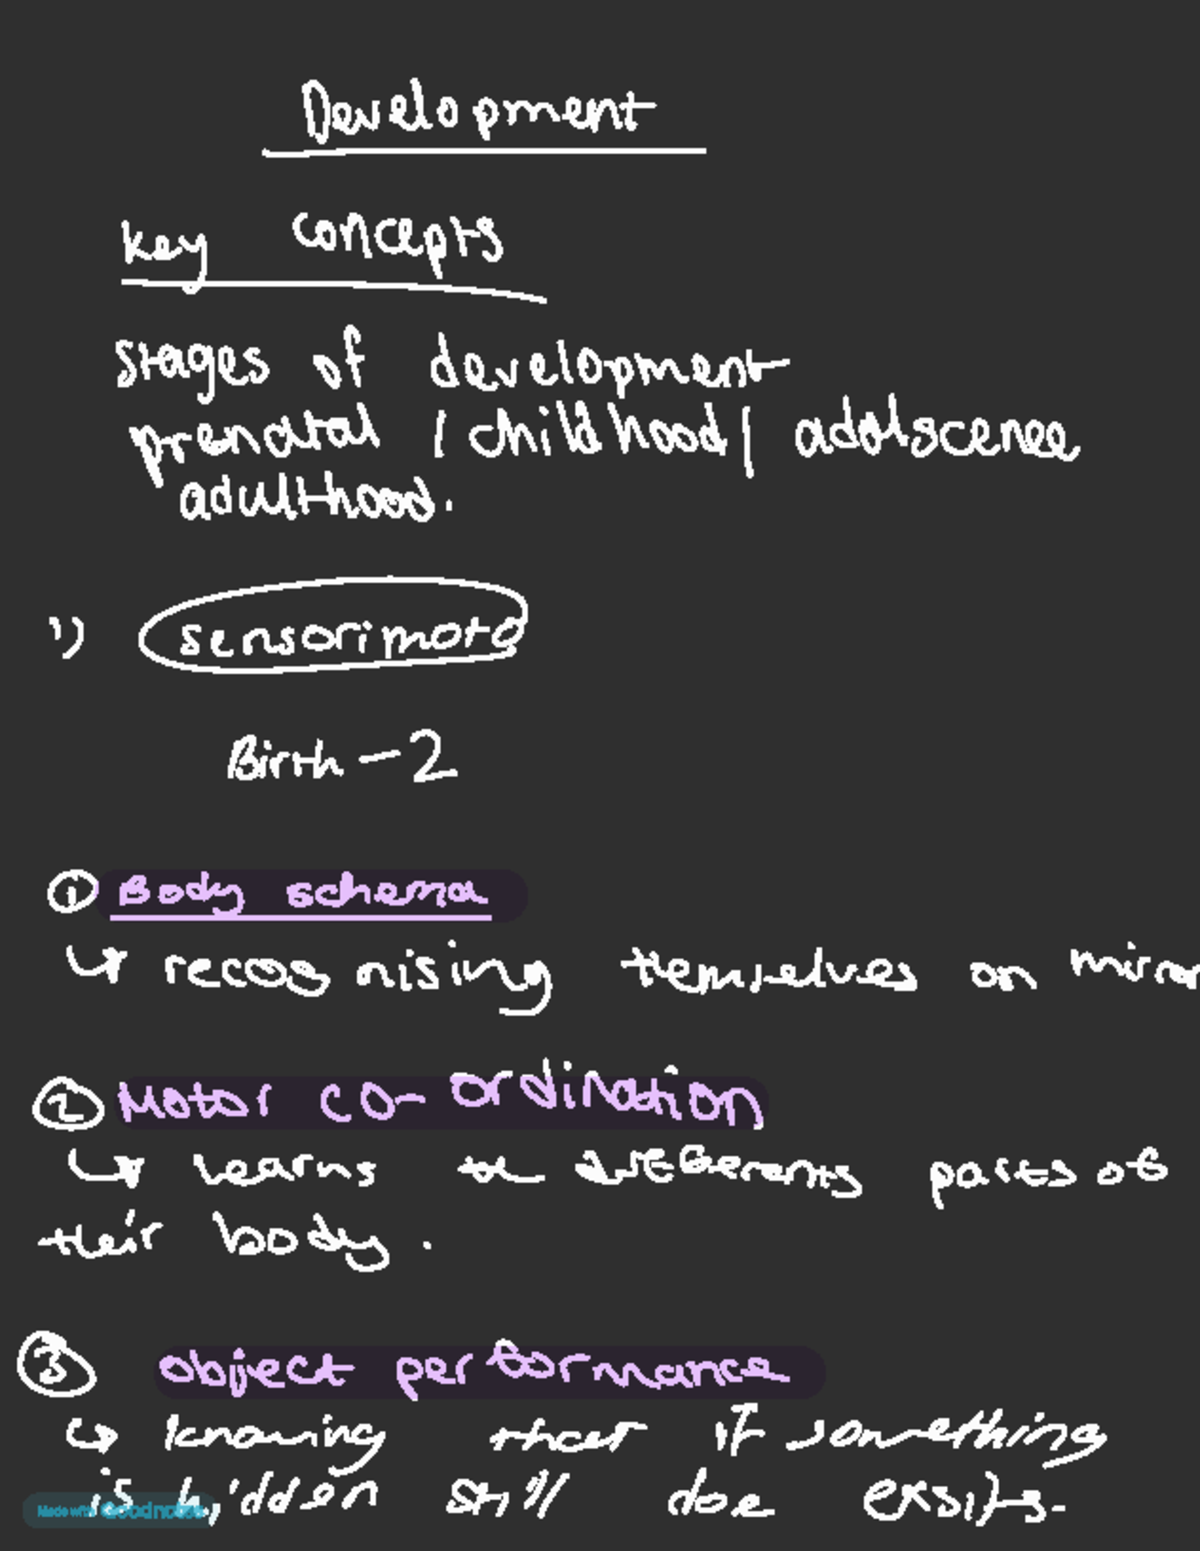 Development
key concepts
stages of development
prenatal / childhood / adolscenee
adulthood.
1) sensorimoto
Birth - 2
① Body schema
↳ recognising themselves on mirror
② Motor co-ordination
↳ learns the differents parts of
their body.
③ object performance
↳ knowing that if something
is hidden still doe exsits.
Made with Goodnotes